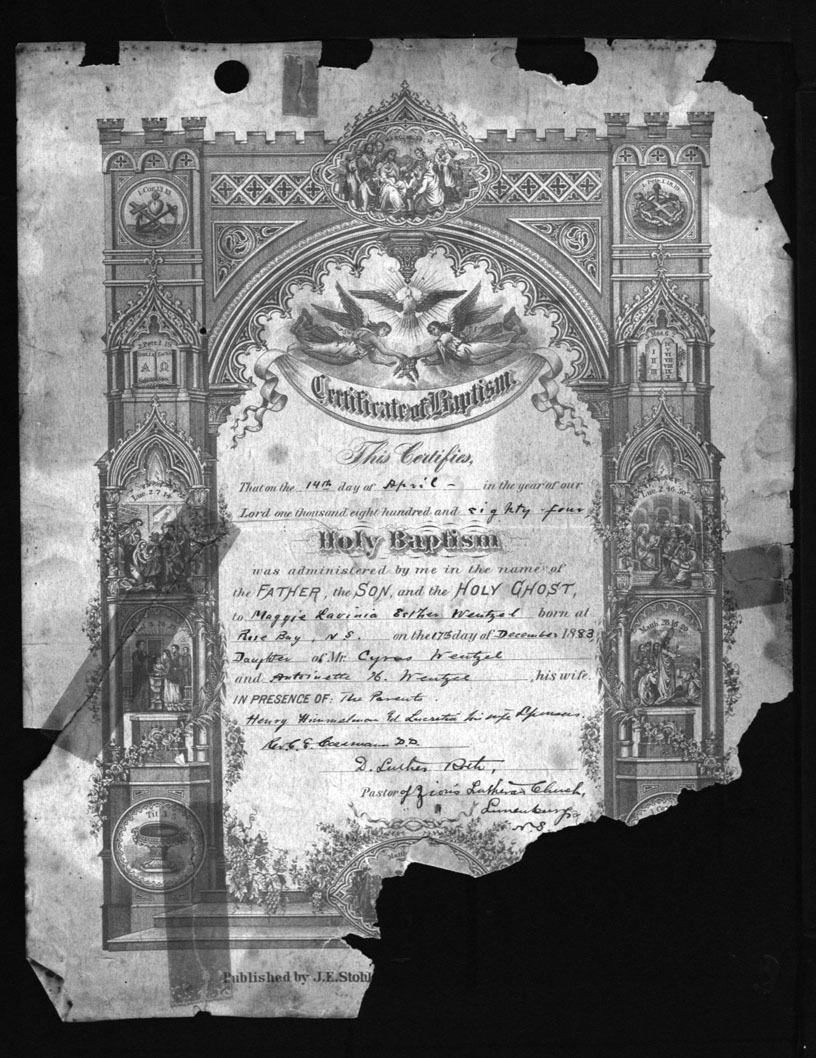 1. Cor. 13. 13.
2. Peter 1. 19.
BIBLIA SACRA
Α Ω
I
II
III
IV
V
VI
VII
VIII
IX
X
Certificate of Baptism.
This Certifies,
That on the 14th day of April - in the year of our
Lord one thousand eight hundred and eighty-four
Holy Baptism
was administered by me in the name of
the FATHER, the SON, and the HOLY GHOST,
to Maggie Lavinia Esther Wentzel born at
Rose Bay, N.S. on the 17th day of December 1883,
Daughter of Mr. Cyros Wentzel
and Antoinette H. Wentzel, his wife.
IN PRESENCE OF: The Parents.
Henry Himmelman & Lucretia his wife Sponsors
Rev. C. E. Cossmann D.D.
D. Luther Roth,
Pastor of Zion's Lutheran Church,
Lunenburg,
N.S.
Luc. 2. 7. 14.
Luc. 2. 46. 50.
Math. 28. 18. 20.
Tit. 3. 5.
Math
Published by J.E. Stohl